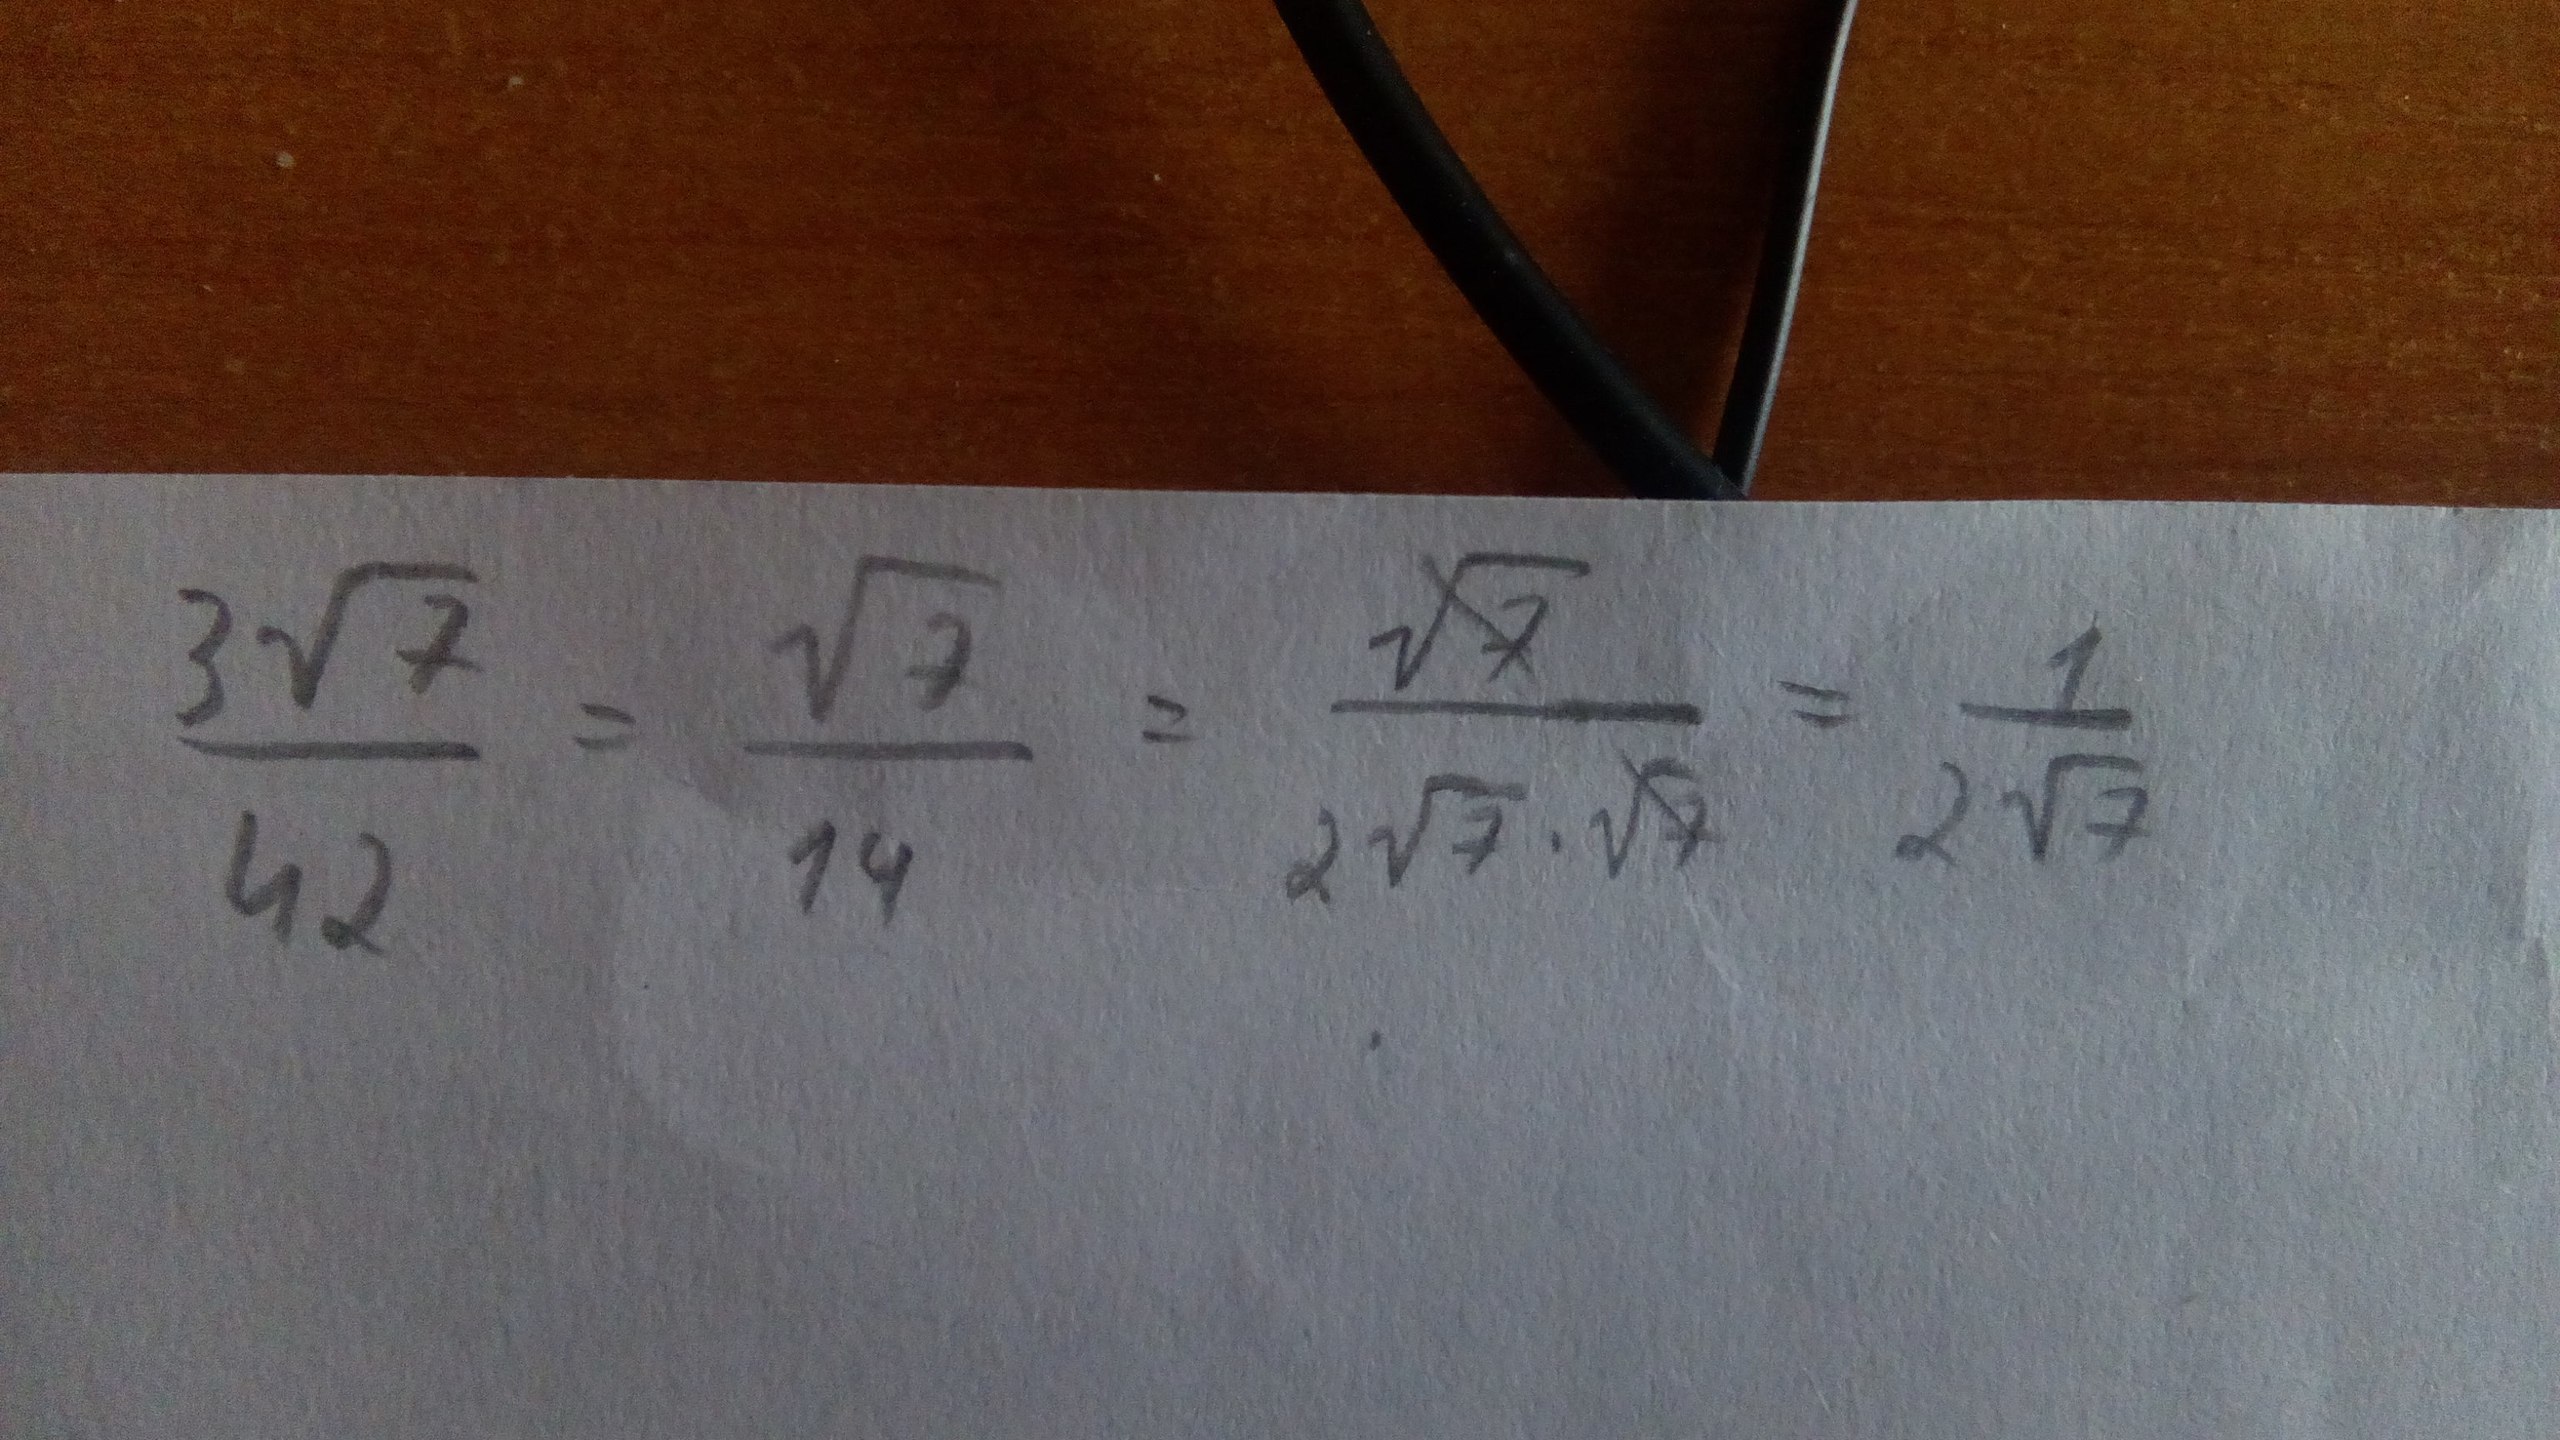 3√7/42 = √7/14 = √7/2√7·√7 = 1/2√7